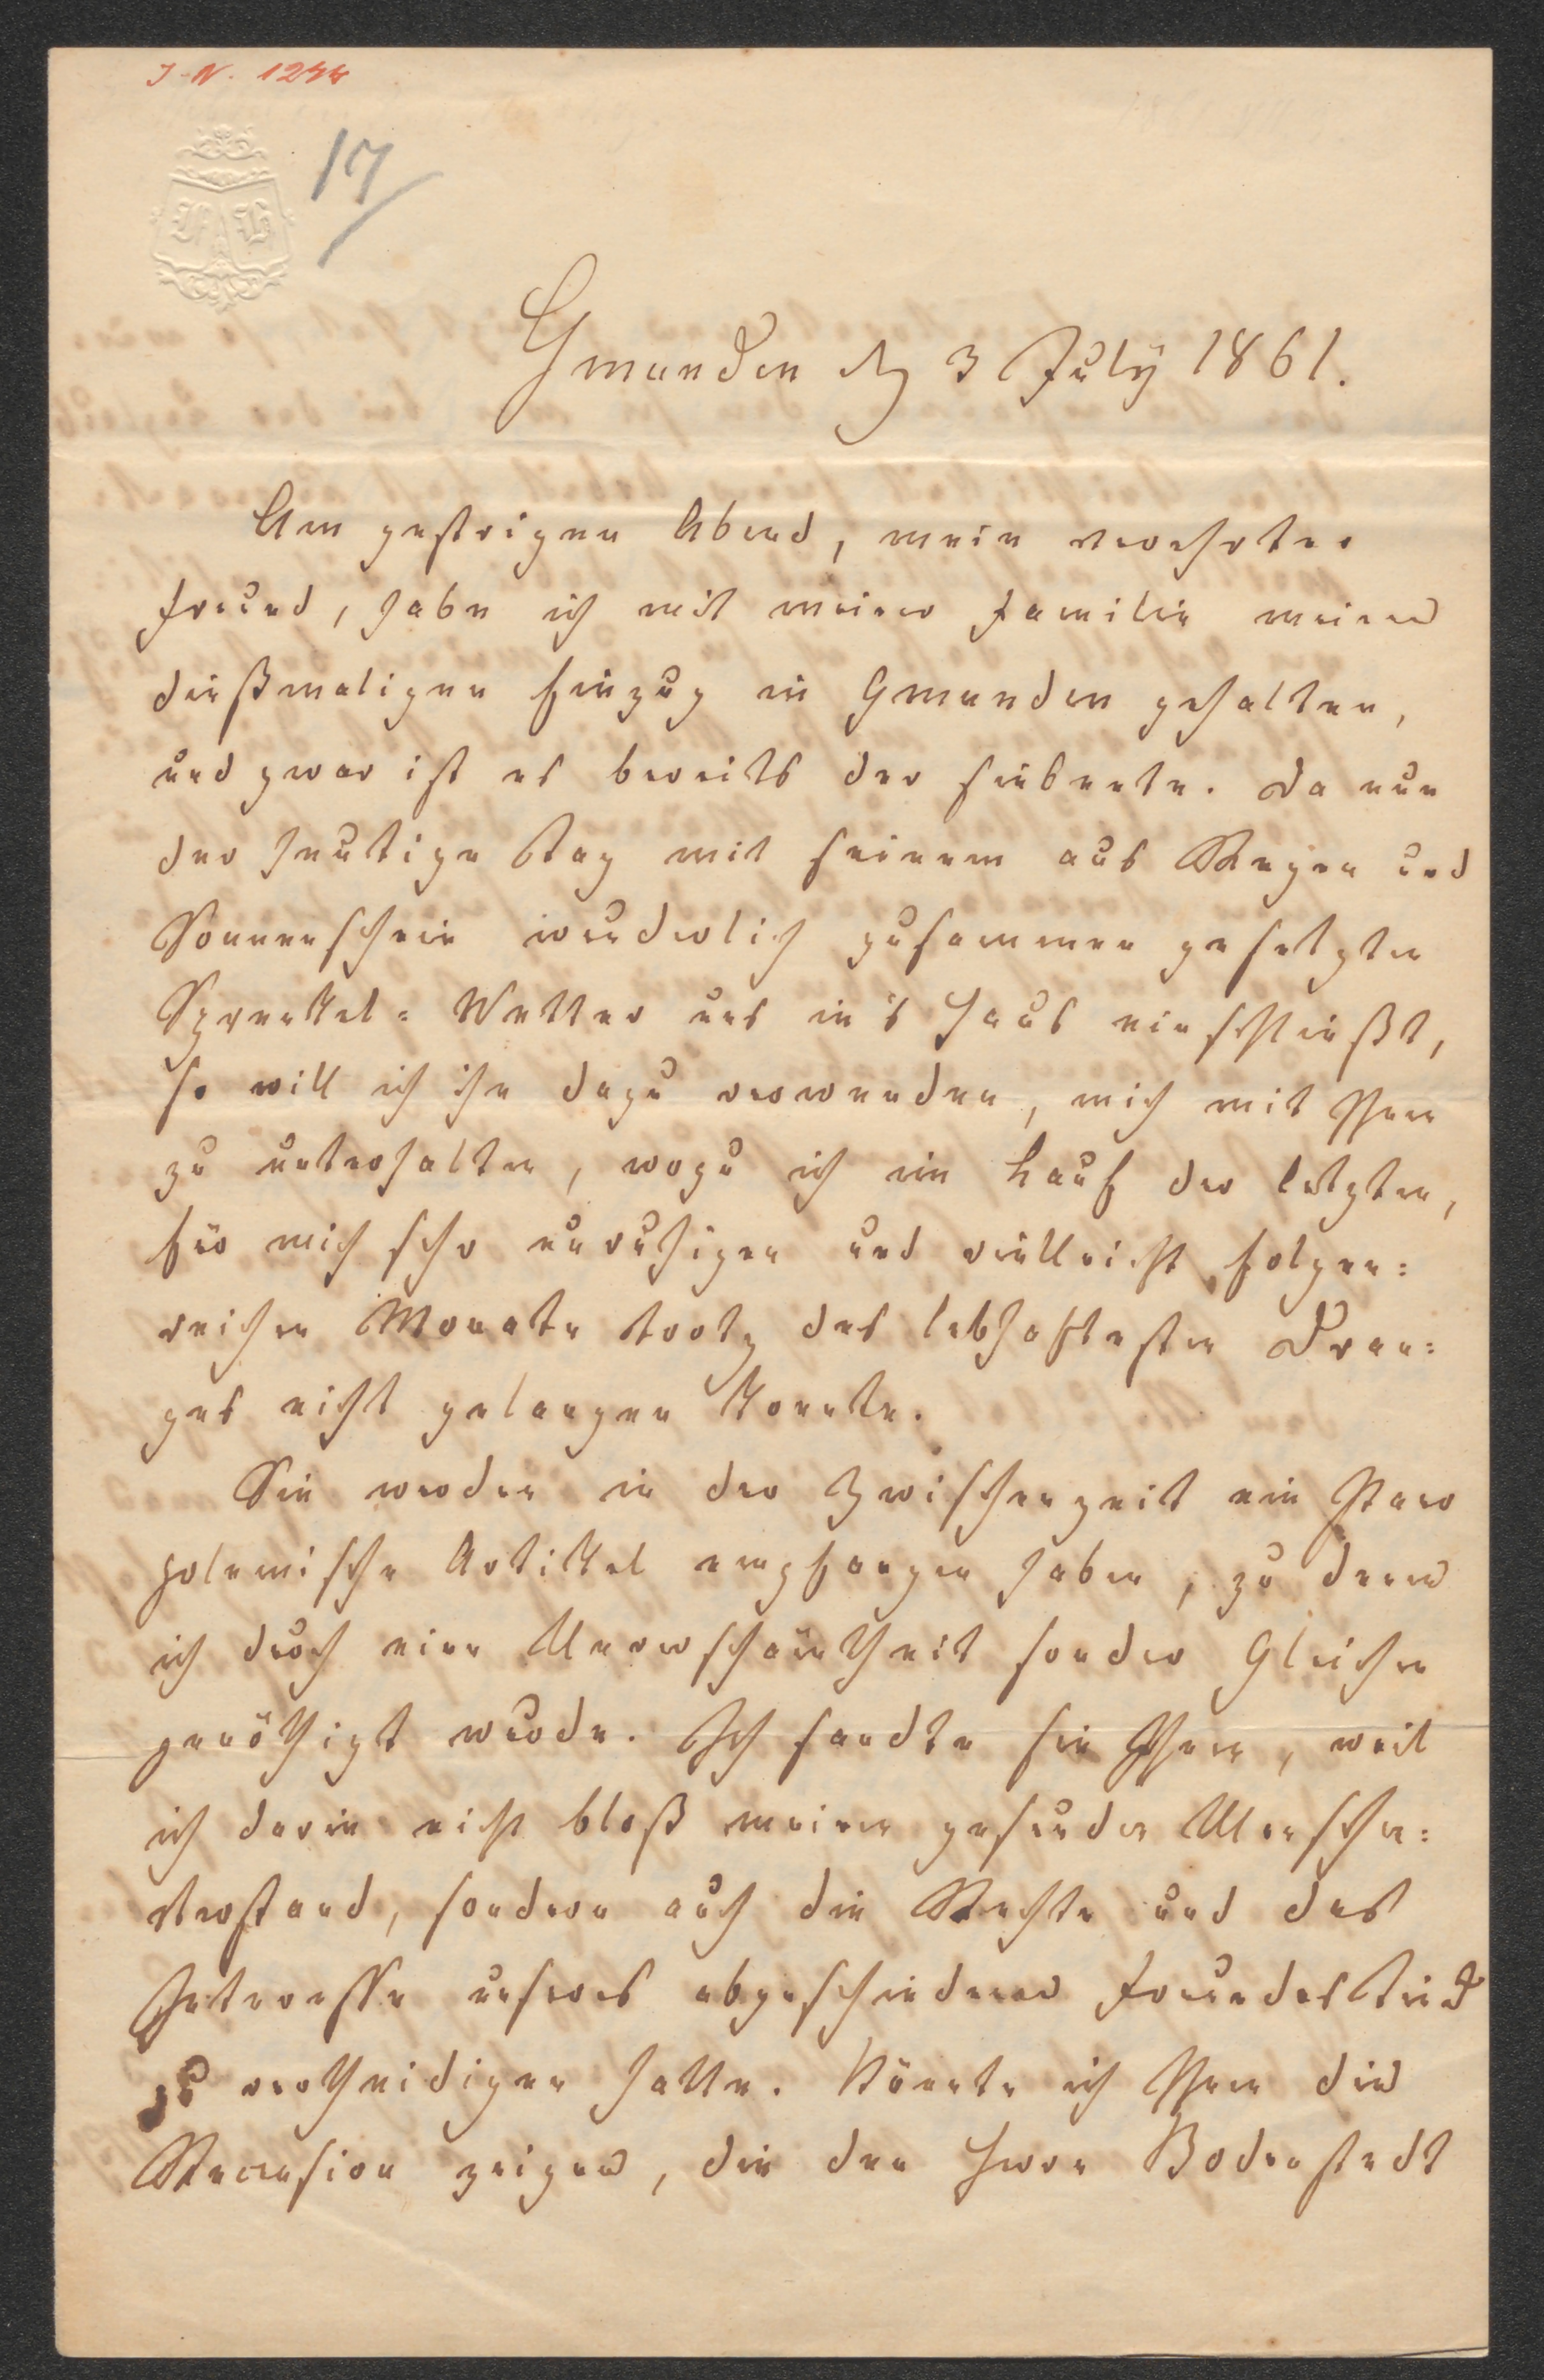 J. N. 1244
17
Gmunden den 3 July 1861.
Am gestrigen Abend, mein verehrter
Freund, habe ich mit meiner Familie meinen
dießmaligen Einzug in Gmunden gehalten,
und zwar ist es bereits der siebente. Da nun
der heutige Tag mit seinem aus Regen und
Sonnenschein wunderlich zusammen gesetzten
Sprenkel-Wetter uns in's Haus einschließt,
so will ich ihn dazu verwenden, mich mit Ihnen
zu unterhalten, wozu ich im Lauf der letzten,
für mich sehr unruhigen und vielleicht folgen=
reichen Monate trotz des lebhaftesten Dran=
ges nicht gelangen konnte.
Sie werden in der Zwischenzeit ein Paar
polemische Artikel empfangen haben, zu denen
ich durch eine Unverschämtheit sonder Gleichen
genöthigt wurde. Ich sandte sie Ihnen, weil
ich darin nicht bloß meinen gesunden Menschen=
verstand, sondern auch die Rechte und das
Interesse unseres abgeschiedenen Freundes Tieck
zu vertheidigen hatte. Könnte ich Ihnen die
Recension zeigen, die den Herrn Bodenstedt